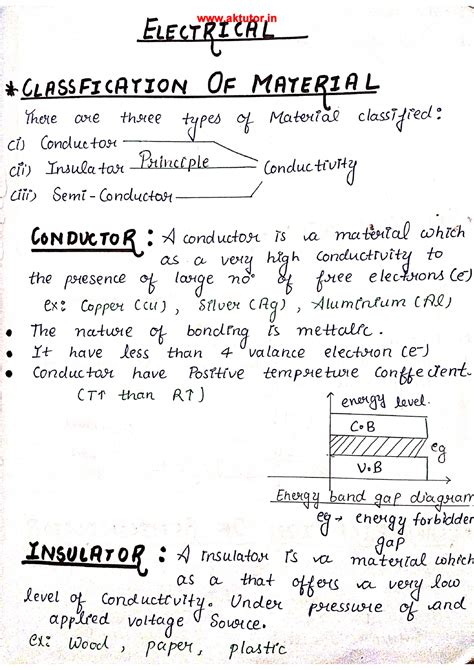 www.aktutor.in
ELECTRICAL
* CLASSFICATION OF MATERIAL
There are three types of Material classified:
(i) Conductor
(ii) Insulator Principle Conductivity
(iii) Semi-Conductor
CONDUCTOR : A conductor is a material which
as a very high conductivity to
the presence of large no° of free electrons (e⁻)
ex: Copper (cu), Silver (Ag), Aluminium (Al)
• The nature of bonding is mettalic.
• It have less than 4 valance electron (e⁻)
• Conductor have Positive tempreture conffecient.
(T↑ than R↑)
energy level.
C.B
eg
V.B
Energy band gap diagram
eg → energy forbidden
gap
INSULATOR : A insulator is a material which
as a that offers a very low
level of conductivity. Under pressure of and
applied voltage Source.
ex: Wood, paper, plastic